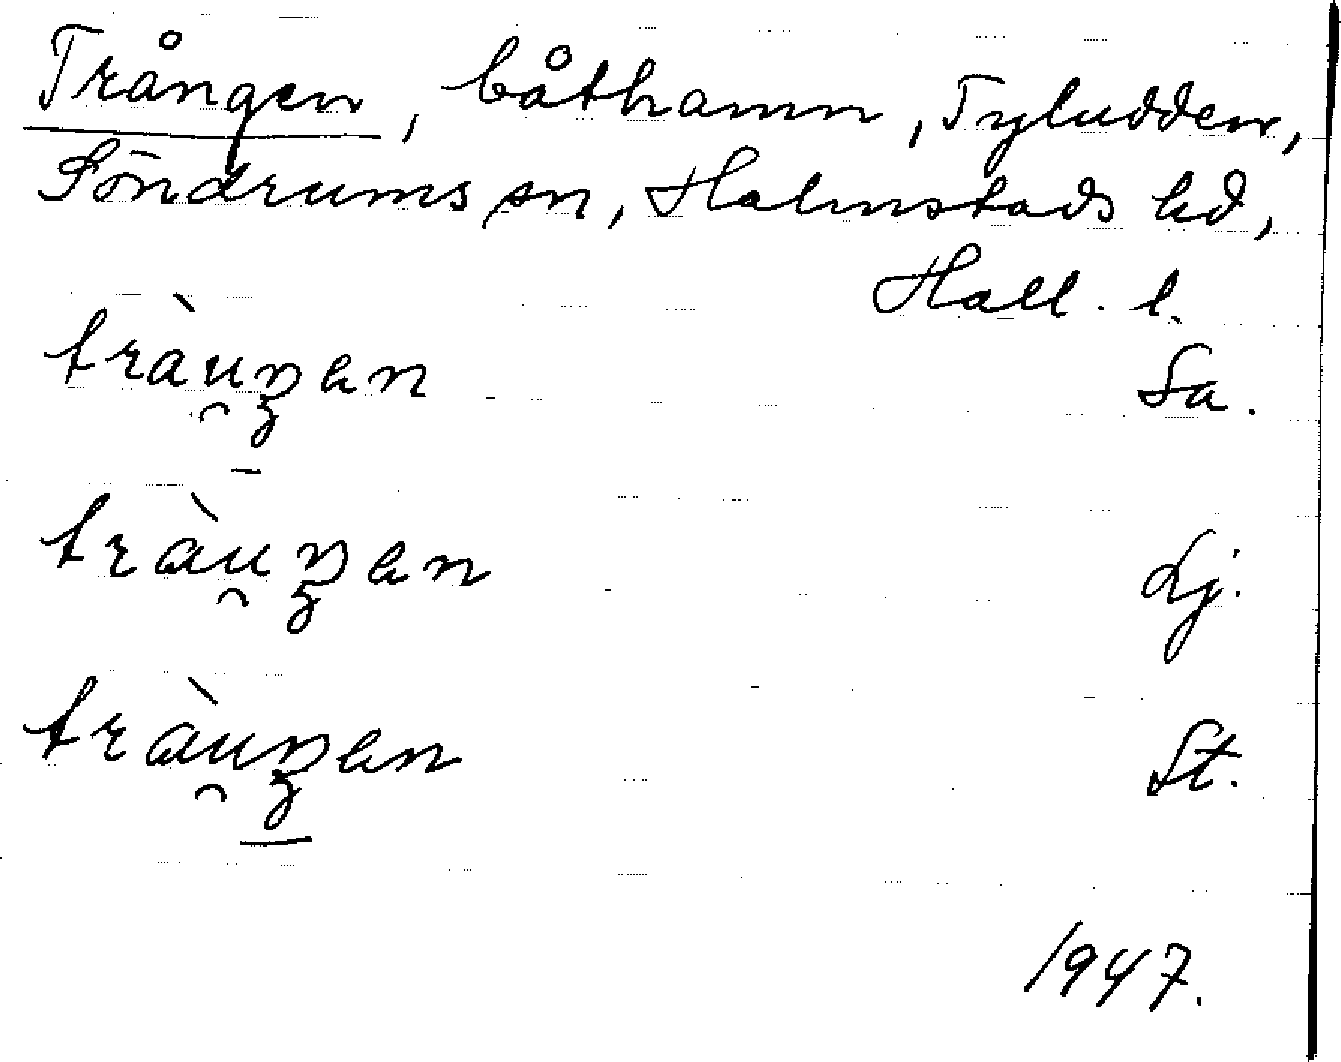 Trången, båthamn, Tyludden,
Söndrums sn, Halmstads hd,
Hall. l.
tràu̯ŋen Sa.
tràu̯ŋen Lj.
tràu̯ŋen St.
1947.